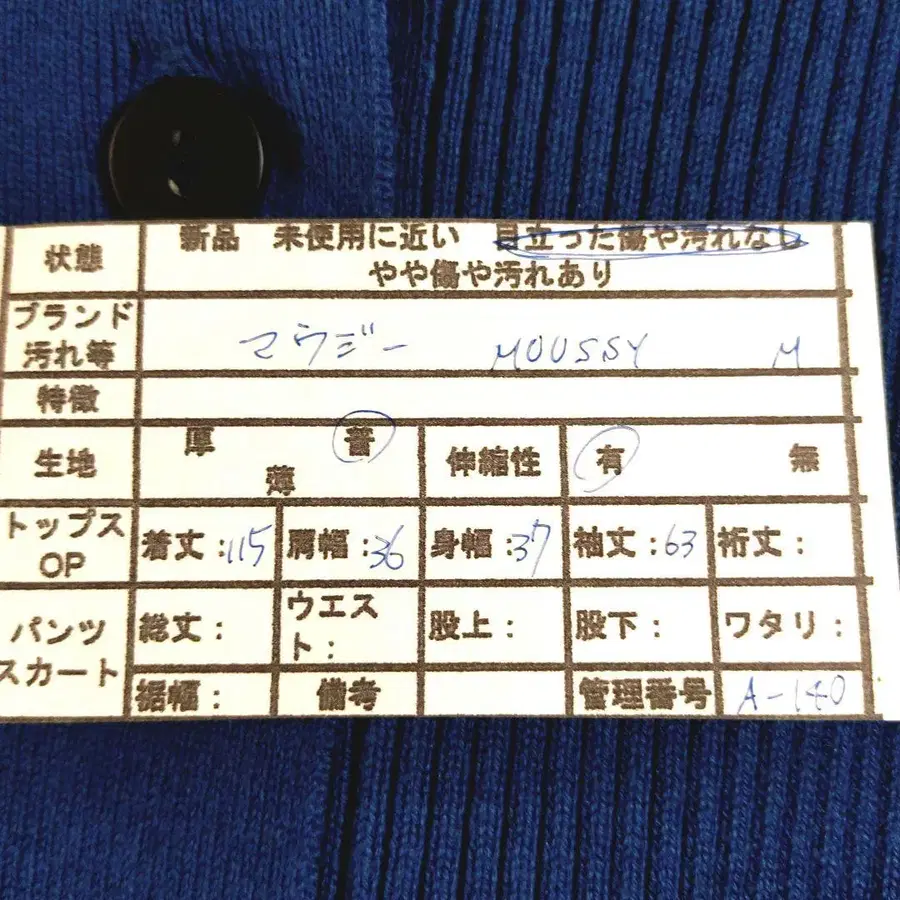 状態 新品 未使用に近い 目立った傷や汚れなし
やや傷や汚れあり
ブランド
汚れ等 マウジー MOUSSY M
特徴
生地 厚 普 薄 伸縮性 有 無
トップス
OP 着丈:115 肩幅:36 身幅:37 袖丈:63 裄丈:
パンツ
スカート 総丈: ウエス
ト: 股上: 股下: ワタリ:
裾幅: 備考 管理番号 A-140